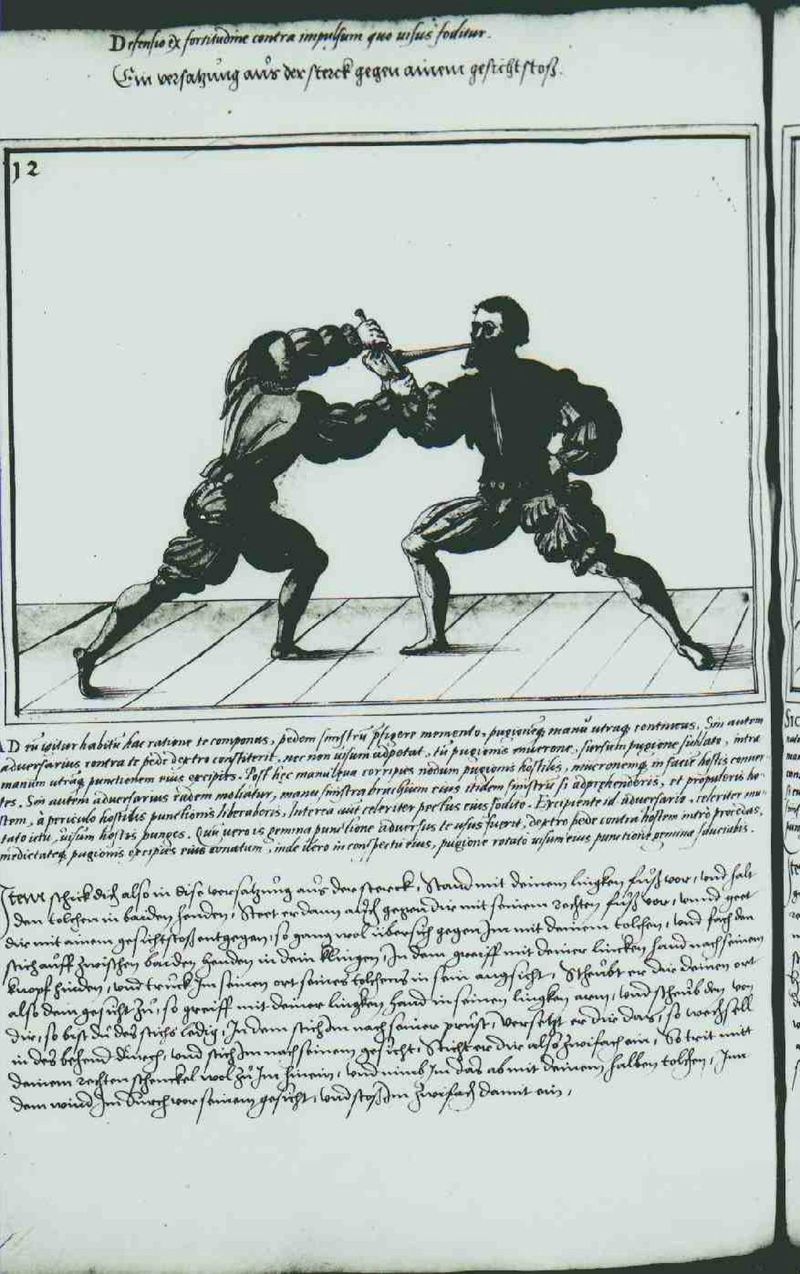 Defensio ex fortitudine contra impulsum quo uisus foditur.
Ein versatzung aus der sterck gegen ainem gesicht stoß.
12
AD eū igitur habitū hac ratione te componas, pedem sinistrū p̄figere memento, pugionēq; manu utraq; contineas. Sin autem
aduersarius contra te pede dextro constiterit, nec non uisum adpetat, tū pugionis mucrone, sursum pugione sublato, intra
manum utrāq; punctionem eius excipies. Post hęc manu qua corripies nodum pugionis hostilis, mucronemq; in faciē hostis conuer
tes. Sin autem aduersarius eadem moliatur, manu sinistra brachium eius itidem sinistrū si adprehenderis, et propuleris ho
stem, à periculo hostilis punctionis liberaberis. Interea aūt celeriter pectus eius fodito. Excipiente id aduersario, celeriter mu
tato ictu, uisum hostis punges. Qui uero is gemina punctione aduersus te usus fuerit, dextro pede contra hostem intro procedas,
medietateq; pugionis excipies eius conatum, inde uero in conspectu eius, pugione rotato uisum eius punctione gemina sauciabis.
Item schick dich also in dise versatzung aus der sterck, Stand mit deinem lingken fuß vor, vnd halt
den tolchen in baiden henden, Steet er dann auch gegen dir mit seinem rechten fuß vor, vnnd geet
dir mit ainem gesicht stoß entgegen, so gang wol übersich gegen Im mit deinem tolchen, vnd fach den
stich auff zwischen baiden henden in dein klingen, In dem greiff mit deiner lincken hand nach seinem
knopf hinden, vnd truck Im seinen ort seines tolchens in sein angesicht, Scheubt er dir deinen ort
also dem gesicht zů, so greiff mit deiner lingken hand in seinen lingken arm, vnd scheub den von
dir, so bist dů des stichs ledig, In dem stich Im nach seiner prust, Versetzt er dir das, so wechsell
in des behend durch, vnd stich Im nach seinem gesicht, Sticht er dir also zwifach ein, So trit mitt
deinem rechten schenckel wol zů Im hinein, vnd nimb Im das ab mit deinem halben tolchen, Inn
dem wind Im durch vor seinem gesicht, vnd stoß Im zwifach damit ein,